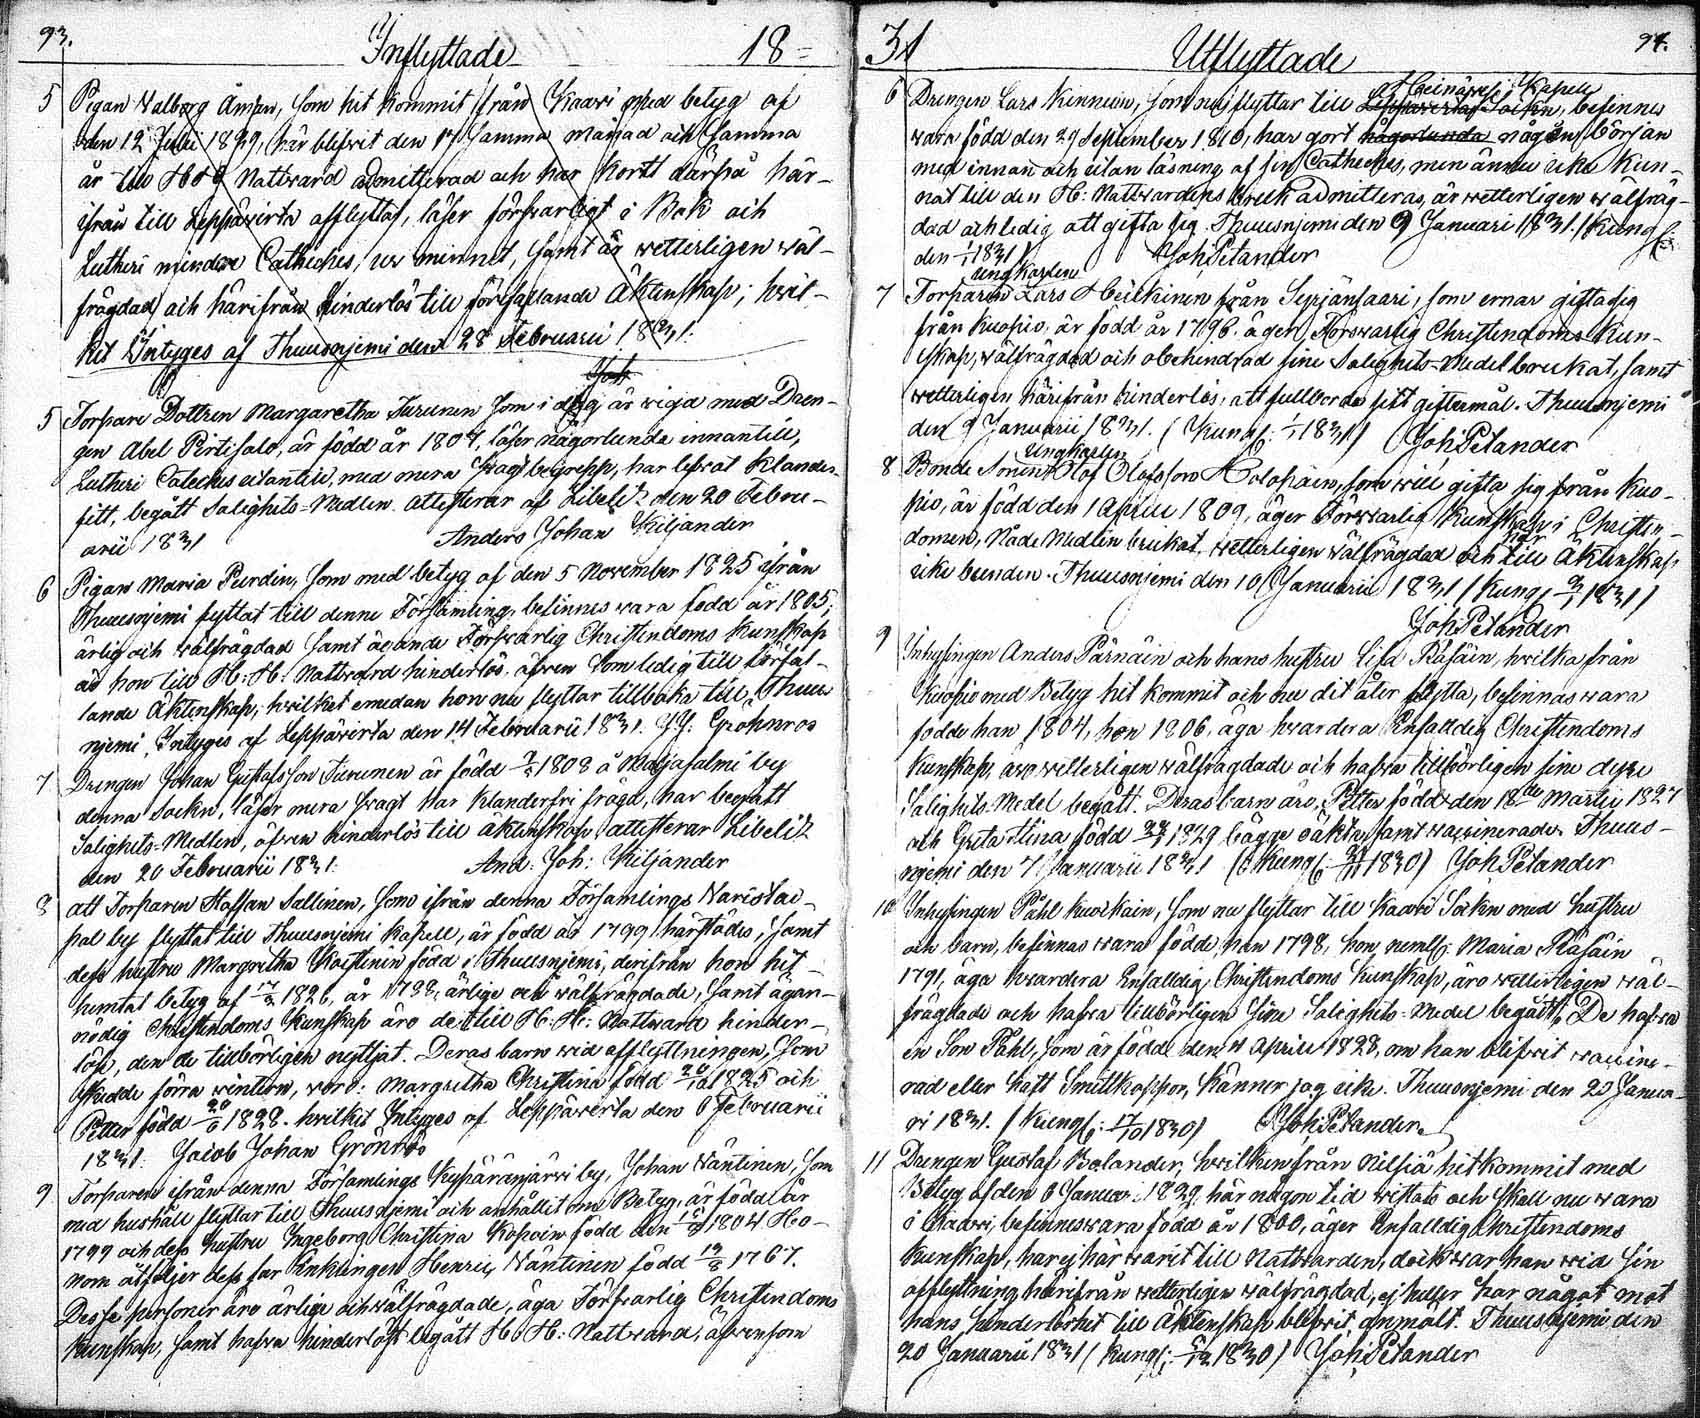 93.
Inflyttade 18=
5 Pigan Valborg Åman, som hit kommit från Kaavi med betyg af
den 12 Julii 1829, här blefvit den samma månad och samma
år till H. H. Nattvard admitterad och har kortt därpå här-
ifrån till Leppävirta afflyttat, läser försvarligt i Bok och
Lutheri mindre Catheches, ur minnet, samt är vetterligen väl-
frägdad och härifrån hinderlös till förefallande Äktenskap; hvil-
ket Intyges af Thuusnjemi den 28 Februarii 1831.
Joh
5 Torpare Dottren Margaretha Turunen som i dag är vigd med Dren-
gen Abel Pertisalo, är född år 1807, läser någorlunda innantill,
Lutheri Cateches utantill, med mera svagt begrepp, har lefvat Klander-
fitt, begått Salighets-Medlen. attesterar af Libelitz den 20 Febru-
arii 1831 Anders Johan Kiljander
6 Pigan Maria Purdin, som med betyg af den 5 November 1825 ifrån
Thuusnjemi flyttat till denne Församling, befinnes vara född år 1805,
ärlig och välfrägdad samt ägande Försvarlig Christendoms Kunskap
är hon till H. H. Nattvard hinderlös, äfven som ledig till förefal-
lande Äktenskap, hvilket emedan hon nu flyttar tillbaka till Thuus
njemi, Intyges af Leppävirta den 14 Februarii 1831. J.J. Gröhnros
7 Drengen Johan Gustafsson Turunen är född 1808 å Maljasalmi by
denna Socken, läser mera svagt har Klanderfri frägd, har begått
Salighets-Medlen, äfven hinderlös till äktenskap attesterar Libelitz
den 20 Februarii 1831. And: Joh: Kiljander
8 att Torparen Staffan Sallinen, som ifrån denna Församlings Varistai-
pal by flyttat till Thuusnjemi Kapell, är född år 1799 härstädes, samt
dess hustru Margretha Kaistinin född i Thuusnjemi, derifrån hon hit
hemtat betyg af 1820, år 1798, ärlige och välfrägdade, samt ägan-
nödig Christendoms Kunskap äro de till H: H: Nattvard hinder-
löse, den de tillbörligen nyttjat. Deras barn vid afflyttningen, som
skedde förra vintern, voro: Margretha Christina född 1825 och
Petter född 1828. hvilket Intyges af Leppävirta den 6 Februarii
1831. Jacob Johan Grönros
9 Torparen ifrån denna Församlings Kypäränjärvi by, Johan Väntinen, som
med hushåll flyttar till Thuusnjemi och anhållit om Betyg, är född år
1799 och dess hustru Ingeborg Christina Kopoin född den 1804. Ho-
nom åtföljer dess far Enklingen Henric Väntinen född 1767.
Desse personer äro ärlige och välfrägdade, äga Försvarlig Christendoms
Kunskap, samt hafva hinderlöst begått H. H: Nattvard, äfvensom
31 Utflyttade 94.
at Heinävesi Kapell
6 Drengen Lars Kinnunin, som nu flyttar till Leppävirtas Socken, befinnes
vara född den 29 September 1810, har gort någorlunda någon början
med innan och utan läsning af sin Catheches, men ännu icke kun-
nat till den H: Nattvardens bruk admitteras, är vetterligen välfräg-
dad och ledig att gifta sig. Thuusnjemi den 9 Januari 1831. (Kungs:
den 1/1 1831) Joh: Petander
ungkarlen
7 Torparen Lars Heikkinen från Syrjänsaari, som ernar gifta sig
från Kuopio, är född år 1796. äger Försvarlig Christendoms Kun-
skap, välfrägdad och obehindrad sine Salighets-Medel brukat, samt
vetterligen härifrån hinderlös, att fullborda sitt giftermål. Thuusnjemi
den 9 Januarii 1831. (Kungs: 1/1 1831) Joh: Petander
ungkarlen
8 Bonde Sonen Olof Olofsson Holopain, som vill gifta sig från Kuo-
pio, är född den 1 Aprill 1809, äger Försvarlig Kunskap i Christen-
domen, Nåde Medlen brukat, vetterligen välfrägdad och till Äktenskap
icke bunden. Thuusnjemi den 10 Januarii 1831 (Kungs 1831)
Joh: Petander
9 Inhysingen Anders Pärnäin och hans hustru Lisa Räsäin, hvilka från
Kuopio med Betyg hit kommit och nu dit åter flytta, befinnas vara
födde han 1804, hon 1806, äga hvardera Enfalldig Christendoms
Kunskap, äro vetterligen välfrägdade och hafva tillbörligen sine dyre
Salighets Medel begått. Deras barn äro, Petter född den 18de Martii 1827
och Greta Stina född 1829 bägge oäkta, samt vaccinerade. Thuus-
njemi den 7 Januarii 1831 (Kungs: 1830) Joh: Petander
10 Inhysingen Påhl Kuvikain, som nu flyttar till Kaavi Socken med hustru
och barn, befinnas vara födde, han 1798, hon neml: Maria Räsäin
1791, äga hvardera Enfalldig Christendoms Kunskap, äro vetterligen väl-
frägdade och hafva tillbörligen sine Salighets-Medel begått. De hafva
en Son Påhl, som är född den 4 Aprill 1828, om han blifvit vaccine-
rad eller haft Smittkoppor, känner jag icke. Thuusnjemi den 20 Janua-
ri 1831. (Kungs: 17/10 1830) Joh: Petander
11 Drengen Gustaf Bolander, hvilken från Nilsiä hit kommit med
Betyg af den 6 Januari 1829, här någon tid vistats och skall nu vara
i Kaavi, befinnes vara född år 1800, äger Enfalldig Christendoms
Kunskap, har ej här varit till Nattvarden, dock var han vid sin
afflyttning härifrån vetterligen välfrägdad, ej heller har något mot
hans hinderlöshet till Äktenskap blifvit anmält. Thuusnjemi den
20 Januarii 1831 (Kungs: 1830) Joh: Petander